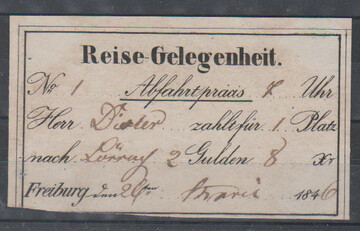 Reise-Gelegenheit.
No 1 Abfahrt präcis 7 Uhr
Herr zahlt für 1 Platz
nach Lörrach 2 Gulden 8 Xr
Freiburg den 26ten 1846